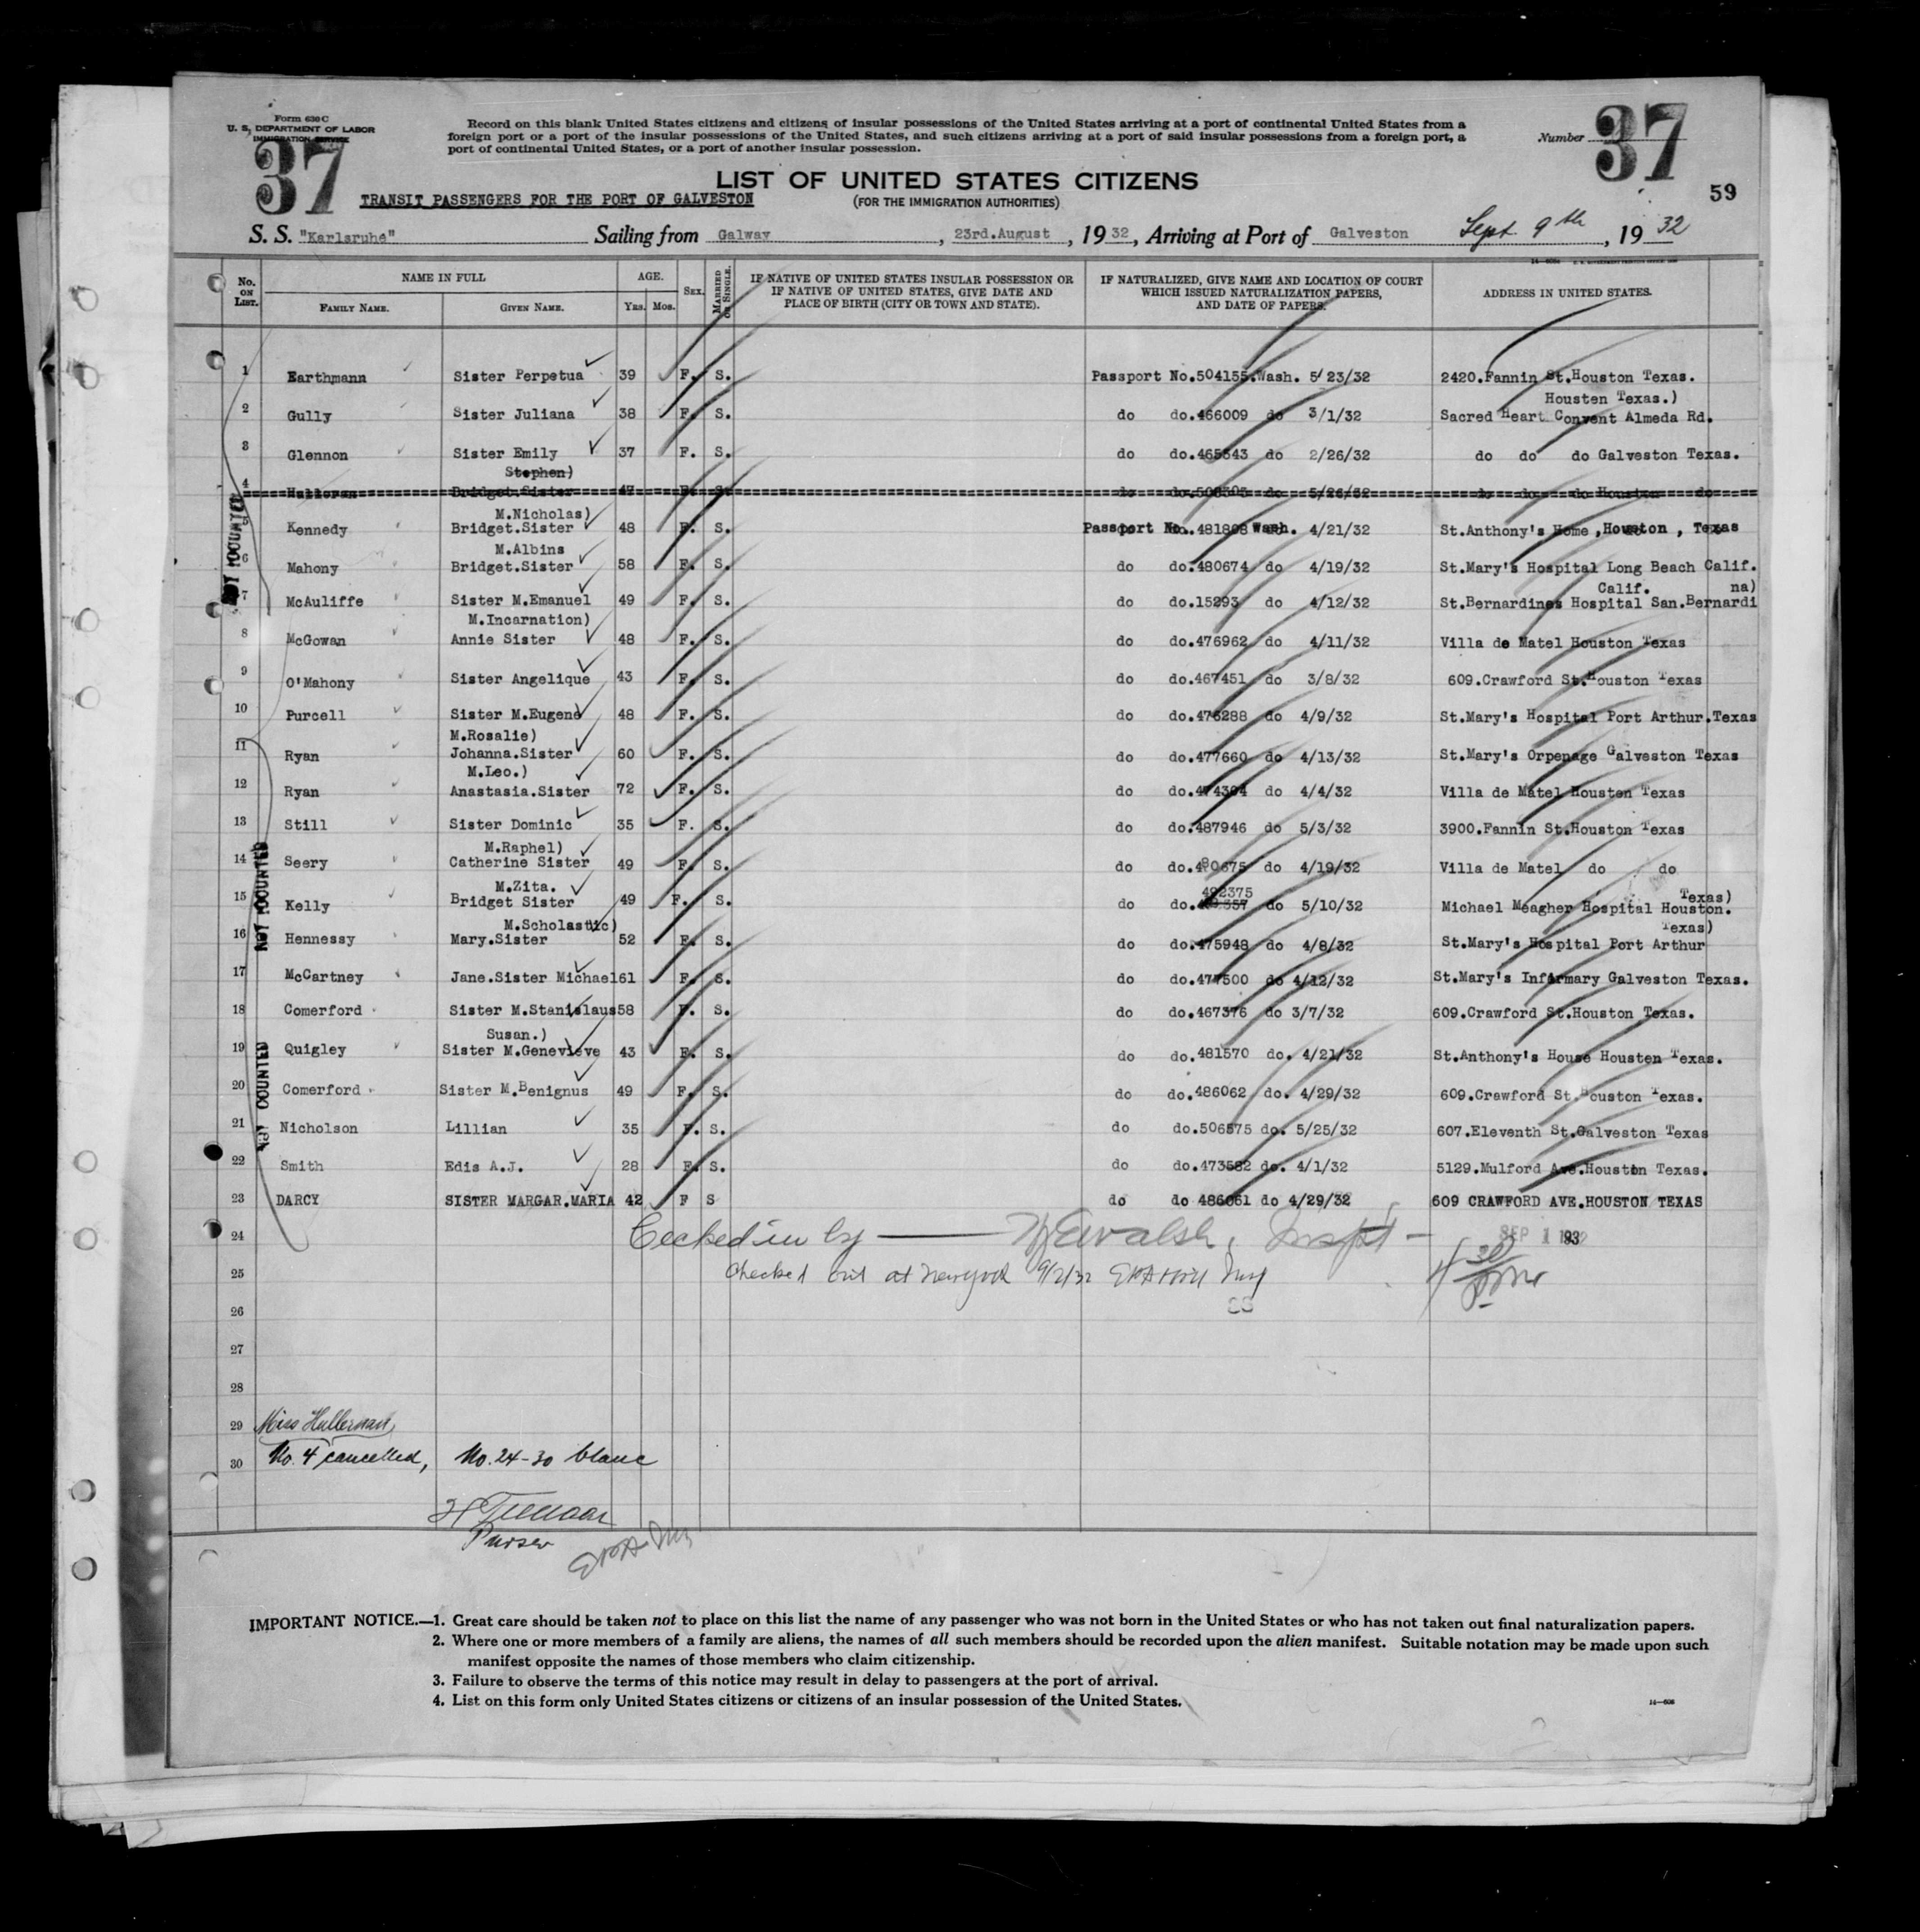 Form 630 C
U. S. DEPARTMENT OF LABOR
IMMIGRATION SERVICE
37
Record on this blank United States citizens and citizens of insular possessions of the United States arriving at a port of continental United States from a
foreign port or a port of the insular possessions of the United States, and such citizens arriving at a port of said insular possessions from a foreign port, a
port of continental United States, or a port of another insular possession.
Number 37
LIST OF UNITED STATES CITIZENS
59
TRANSIT PASSENGERS FOR THE PORT OF GALVESTON
(FOR THE IMMIGRATION AUTHORITIES)
S. S. "Karlsruhe" Sailing from Galway, 23rd.August, 1932, Arriving at Port of Galveston Sept 9th, 1932
No. ON LIST. NAME IN FULL AGE. SEX. MARRIED OR SINGLE. IF NATIVE OF UNITED STATES INSULAR POSSESSION OR IF NATIVE OF UNITED STATES, GIVE DATE AND PLACE OF BIRTH (CITY OR TOWN AND STATE). IF NATURALIZED, GIVE NAME AND LOCATION OF COURT WHICH ISSUED NATURALIZATION PAPERS, AND DATE OF PAPERS. ADDRESS IN UNITED STATES.
FAMILY NAME. GIVEN NAME. Yrs. Mos.
1 Earthmann Sister Perpetua 39 F. S. Passport No.504155.Wash. 5/23/32 2420.Fannin St.Houston Texas.
Housten Texas.)
2 Gully Sister Juliana 38 F. S. do do.466009 do 3/1/32 Sacred Heart Convent Almeda Rd.
3 Glennon Sister Emily 37 F. S. do do.465643 do 2/26/32 do do do Galveston Texas.
Stephen)
4 Halloran Bridget.Sister 47 F. S. do do. do 5/26/32 do do do Houston do
M.Nicholas)
5 Kennedy Bridget.Sister 48 F. S. Passport No.481808 Wash. 4/21/32 St.Anthony's Home ,Houston , Texas
M.Albins
6 Mahony Bridget.Sister 58 F. S. do do.480674 do 4/19/32 St.Mary's Hospital Long Beach Calif.
Calif. na)
7 McAuliffe Sister M.Emanuel 49 F. S. do do.15293 do 4/12/32 St.Bernardines Hospital San.Bernardi
M.Incarnation)
8 McGowan Annie Sister 48 F. S. do do.476962 do 4/11/32 Villa de Matel Houston Texas
9 O'Mahony Sister Angelique 43 F. S. do do.467451 do 3/8/32 609.Crawford St.Houston Texas
10 Purcell Sister M.Eugene 48 F. S. do do.476288 do 4/9/32 St.Mary's Hospital Port Arthur.Texas
M.Rosalie)
11 Ryan Johanna.Sister 60 F. S. do do.477660 do 4/13/32 St.Mary's Orpenage Galveston Texas
M.Leo.)
12 Ryan Anastasia.Sister 72 F. S. do do.474364 do 4/4/32 Villa de Matel Housten Texas
13 Still Sister Dominic 35 F. S. do do.487946 do 5/3/32 3900.Fannin St.Houston Texas
M.Raphel)
14 Seery Catherine Sister 49 F. S. do do.480675 do 4/19/32 Villa de Matel do do
M.Zita. 492375 Texas)
15 Kelly Bridget Sister 49 F. S. do do. do 5/10/32 Michael Meagher Hospital Houston.
M.Scholastic) Texas)
16 Hennessy Mary.Sister 52 F. S. do do.475948 do 4/8/32 St.Mary's Hospital Port Arthur
17 McCartney Jane.Sister Michael 61 F. S. do do.477500 do 4/12/32 St.Mary's Infirmary Galveston Texas.
18 Comerford Sister M.Stanislaus 58 F. S. do do.467376 do 3/7/32 609.Crawford St.Houston Texas.
Susan.)
19 Quigley Sister M.Genevieve 43 F. S. do do.481570 do. 4/21/32 St.Anthony's House Housten Texas.
20 Comerford Sister M.Benignus 49 F. S. do do.486062 do. 4/29/32 609.Crawford St.Houston Texas.
21 Nicholson Lillian 35 F. S. do do.506575 do. 5/25/32 607.Eleventh St.Galveston Texas
22 Smith Edis A.J. 28 F. S. do do.473582 do. 4/1/32 5129.Mulford Ave.Houston Texas.
23 DARCY SISTER MARGAR.MARIA 42 F S do do 486061 do 4/29/32 609 CRAWFORD AVE.HOUSTON TEXAS
NOT COUNTED
NOT COUNTED
NOT COUNTED
24 Cecked in by Walsh, Inspt - SEP 1 1932
25 Checked out at New York 9/2/32
26
27
28
29 Miss Hallernan
30 No. 4 cancelled, No. 24-30 blanc
Purser
IMPORTANT NOTICE.—1. Great care should be taken not to place on this list the name of any passenger who was not born in the United States or who has not taken out final naturalization papers.
2. Where one or more members of a family are aliens, the names of all such members should be recorded upon the alien manifest. Suitable notation may be made upon such
manifest opposite the names of those members who claim citizenship.
3. Failure to observe the terms of this notice may result in delay to passengers at the port of arrival.
4. List on this form only United States citizens or citizens of an insular possession of the United States.
14—608